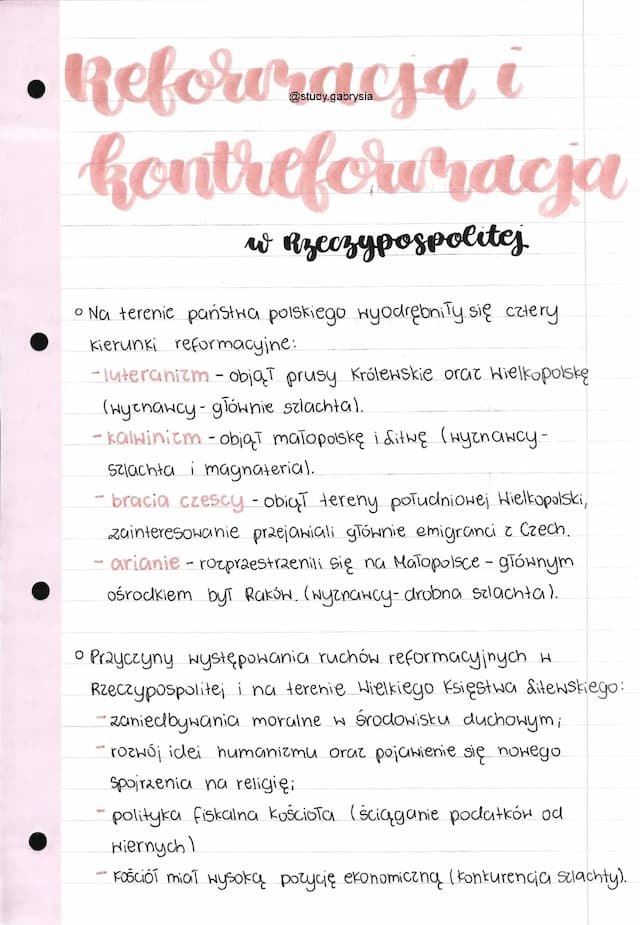 Reformacja i
@study.gabrysia
kontrreformacja
w Rzeczypospolitej
Na terenie państwa polskiego wyodrębniły się cztery
kierunki reformacyjne:
- luteranizm - objął prusy Królewskie oraz Wielkopolskę
(wyznawcy - głównie szlachta).
- kalwinizm - objął małopolskę i Litwę (wyznawcy -
szlachta i magnateria).
- bracia czescy - objął tereny południowej Wielkopolski,
zainteresowanie przejawiali głównie emigranci z Czech.
- arianie - rozprzestrzenili się na Małopolsce - głównym
ośrodkiem był Raków. (wyznawcy - drobna szlachta).
Przyczyny występowania ruchów reformacyjnych w
Rzeczypospolitej i na terenie Wielkiego Księstwa Litewskiego:
- zaniedbywania moralne w środowisku duchowym;
- rozwój idei humanizmu oraz pojawienie się nowego
spojrzenia na religię;
- polityka fiskalna Kościoła (ściąganie podatków od
wiernych)
- Kościół miał wysoką pozycję ekonomiczną (konkurencja szlachty).